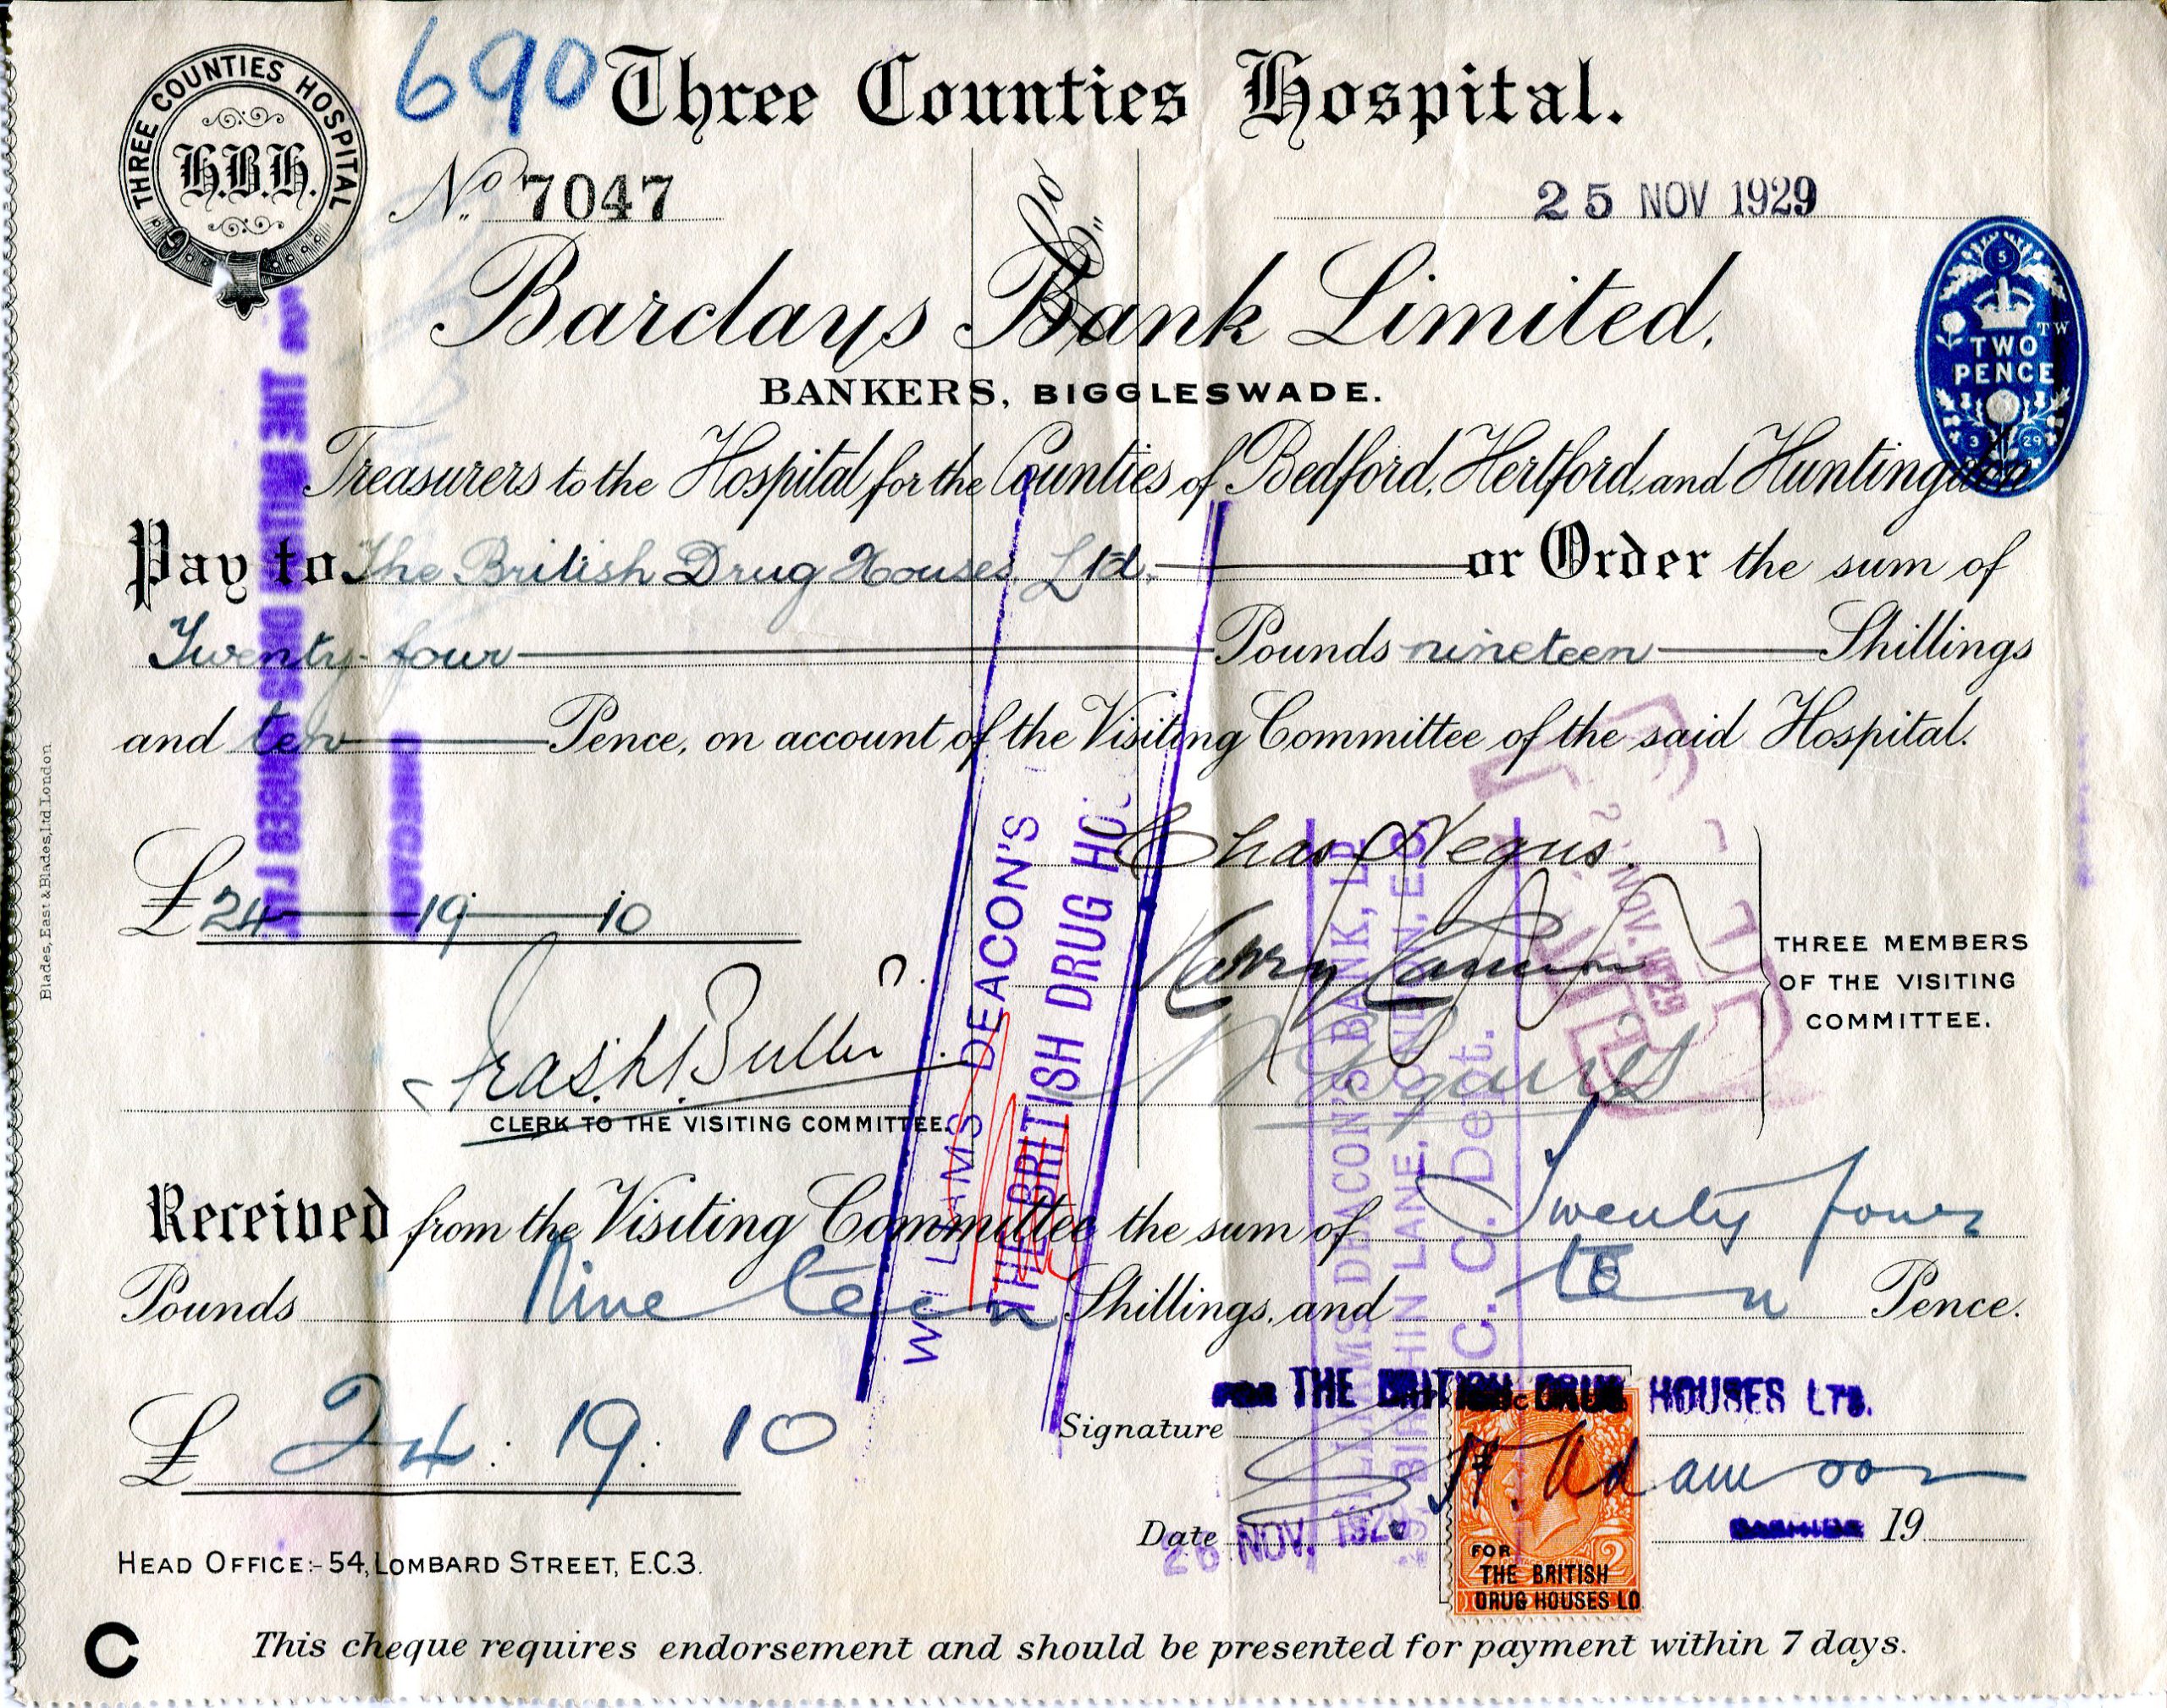 690
THREE COUNTIES HOSPITAL
H.B.H.
Three Counties Hospital.
No. 7047
25 NOV 1929
& Co.
Barclays Bank Limited,
BANKERS, BIGGLESWADE.
TWO PENCE
TW
5
3 29
Treasurers to the Hospital for the Counties of Bedford, Hertford, and Huntingdon
Pay to The British Drug Houses Ltd. or Order the sum of
Twenty-four Pounds nineteen Shillings
and ten Pence, on account of the Visiting Committee of the said Hospital.
£24 19 10
Chas Negus.
Harry
THREE MEMBERS
OF THE VISITING
COMMITTEE.
Butler
CLERK TO THE VISITING COMMITTEE.
WILLIAMS DEACON'S
THE BRITISH DRUG HO
WILLIAMS DEACON'S BANK, LD
BIRCHIN LANE, LONDON, E.C.
C. C. Dept.
NOV. 1929
Received from the Visiting Committee the sum of Twenty four
Pounds Nineteen Shillings, and ten Pence.
£ 24 : 19 : 10
FOR THE BRITISH DRUG HOUSES LTD.
Signature H. Adamson
Date 26 NOV. 192 19
2
FOR
THE BRITISH
DRUG HOUSES LD
HEAD OFFICE:- 54, LOMBARD STREET, E.C.3.
C
This cheque requires endorsement and should be presented for payment within 7 days.
Blades, East & Blades, Ltd London